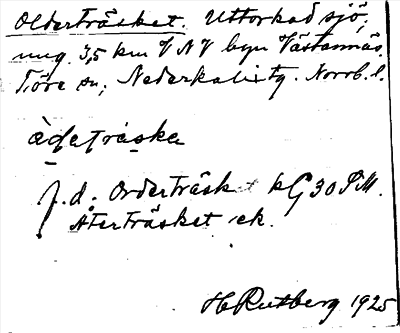 Olderträsket. Uttorkad sjö,
ung. 3,5 km VNV byn Västannäs.
Töre sn, Nederkalix tg. Norrb. l.
J. d. Orderträsk kG 30 SM.
Aterträsket ek.
H Rutberg 1925